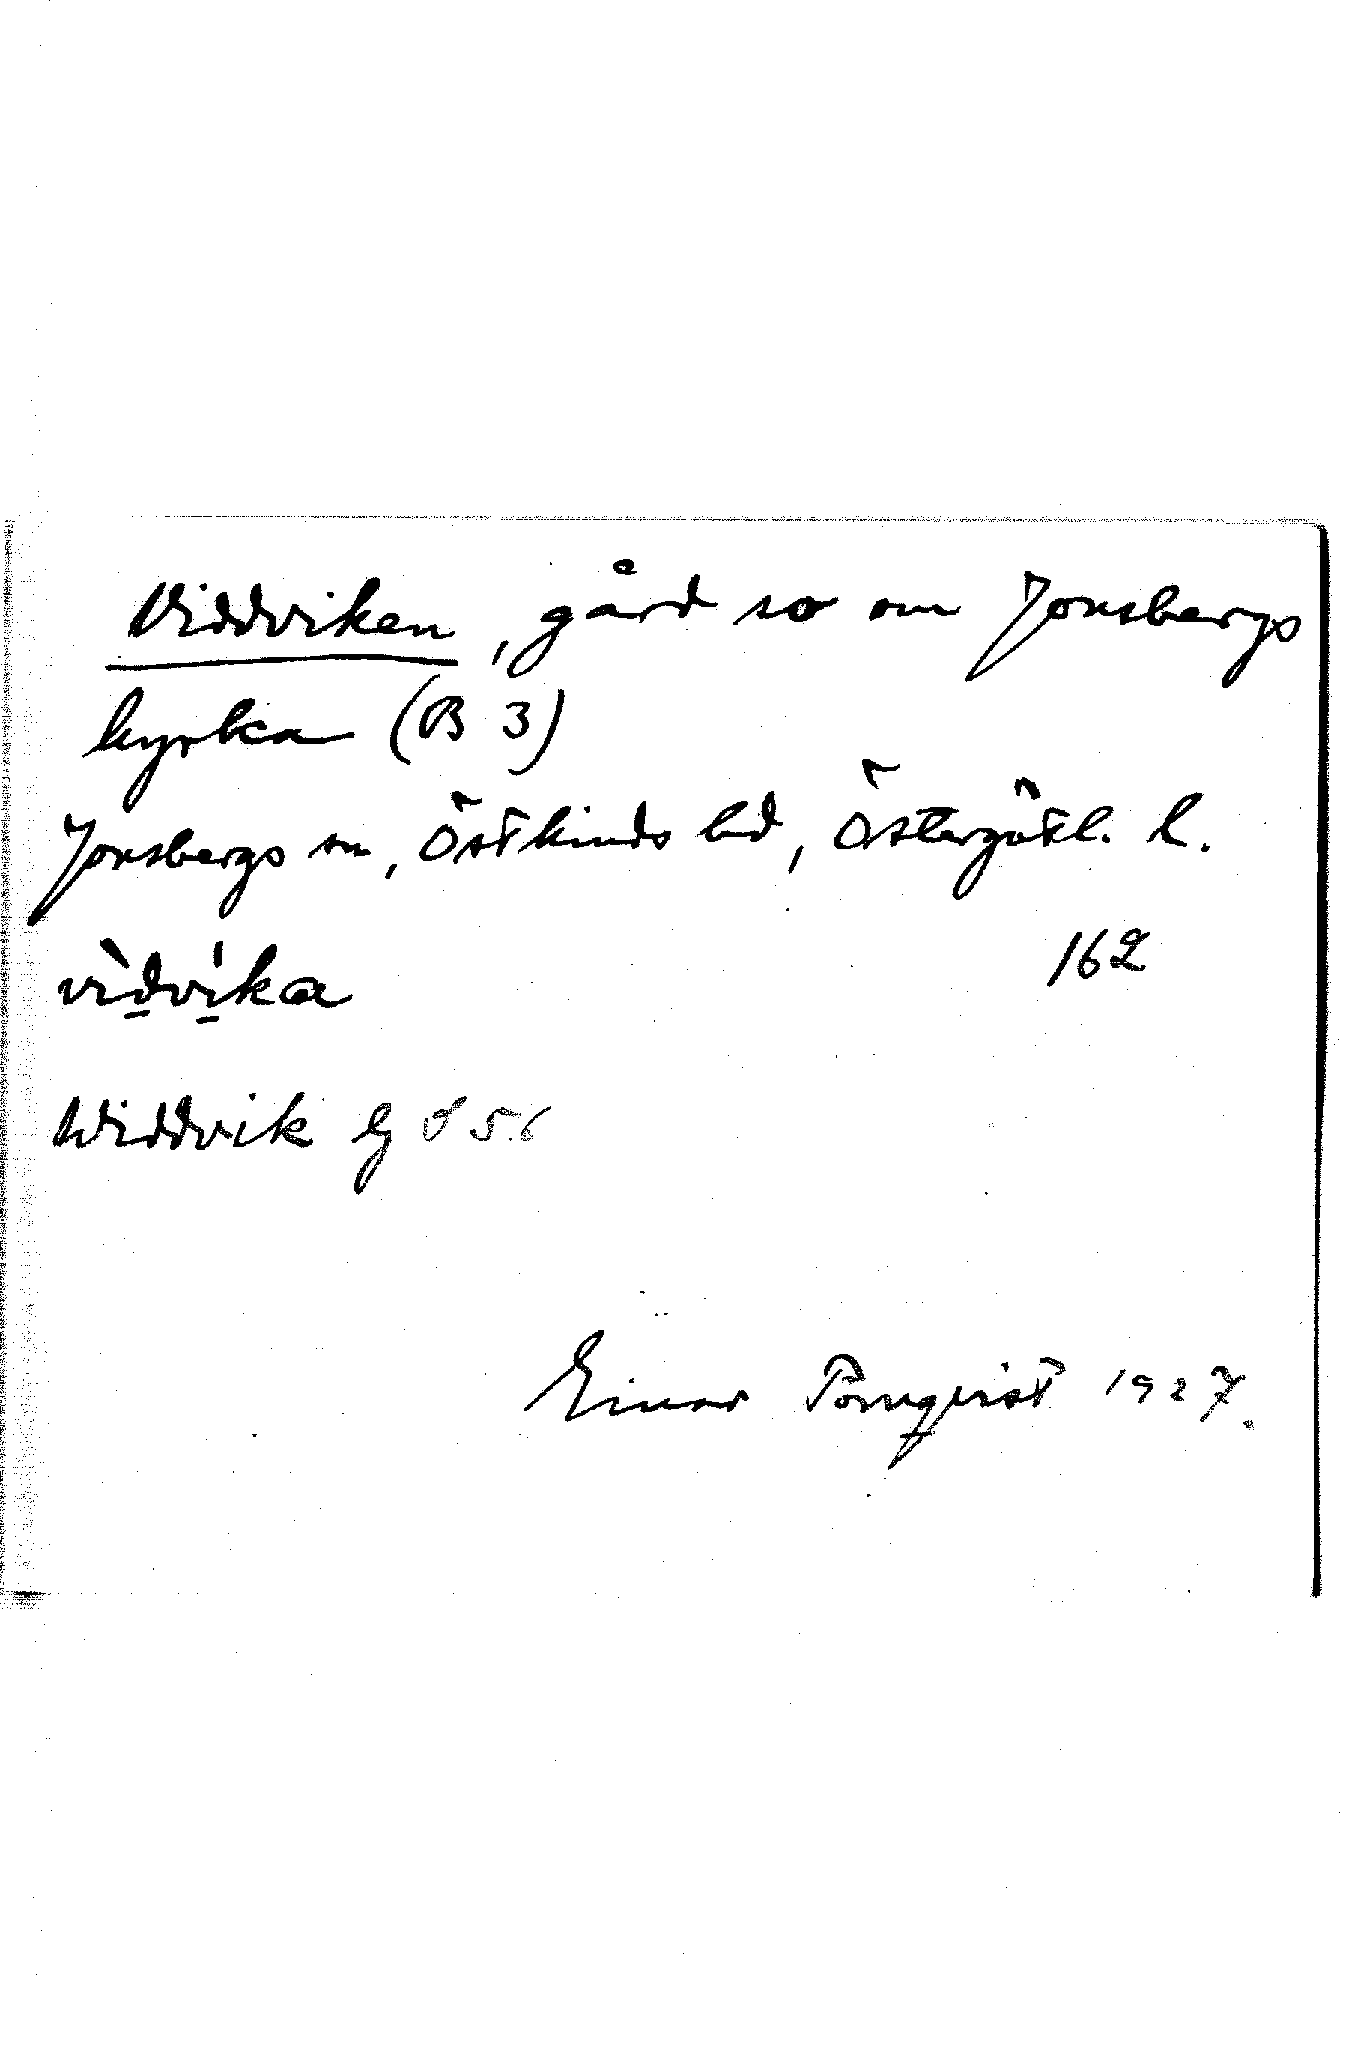 Viddviken, gård so om Jonsbergs
kyrka (B 3)
Jonsbergs sn, Östkinds hd, Östergötl. l.
vìdvíka
162
Widdvik
Einar Törnqvist 1927.